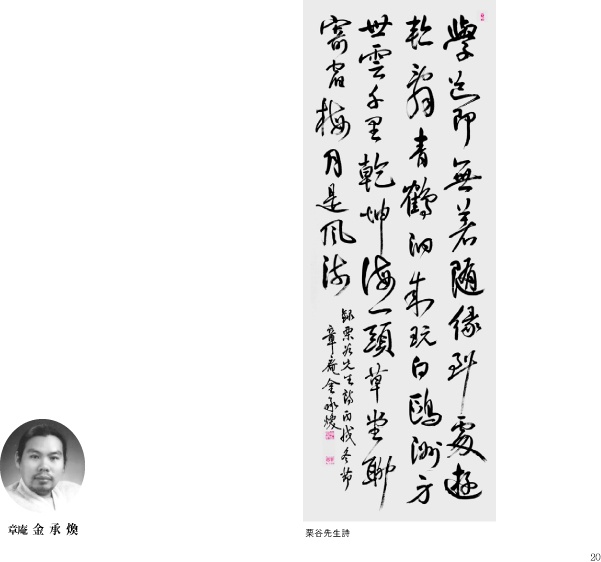 學道即無着随緣到處遊
暫辭青鶴洞來玩白鷗洲身
世雲千里乾坤海一頭草堂聊
寄宿梅月是風流
錄栗谷先生詩丙戌冬節
章庵金承煥
章庵 金承煥
栗谷先生詩
20